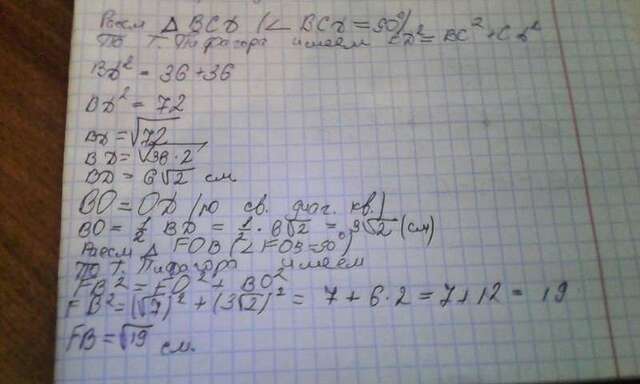 Рассм △ BCD (∠ BCD = 90°)
По Т. Пифагора имеем BD² = BC² + CD²
BD² = 36 + 36
BD² = 72
BD = √72
BD = √36·2
BD = 6√2 см
BO = OD (по св. диаг. кв.)
BO = 1/2 BD = 1/2 · 6√2 = 3√2 (см)
Рассм △ FOB (∠ FOB = 90°)
По Т. Пифагора имеем
FB² = FO² + BO²
FB² = (√7)² + (3√2)² = 7 + 6·2 = 7 + 12 = 19
FB = √19 см.